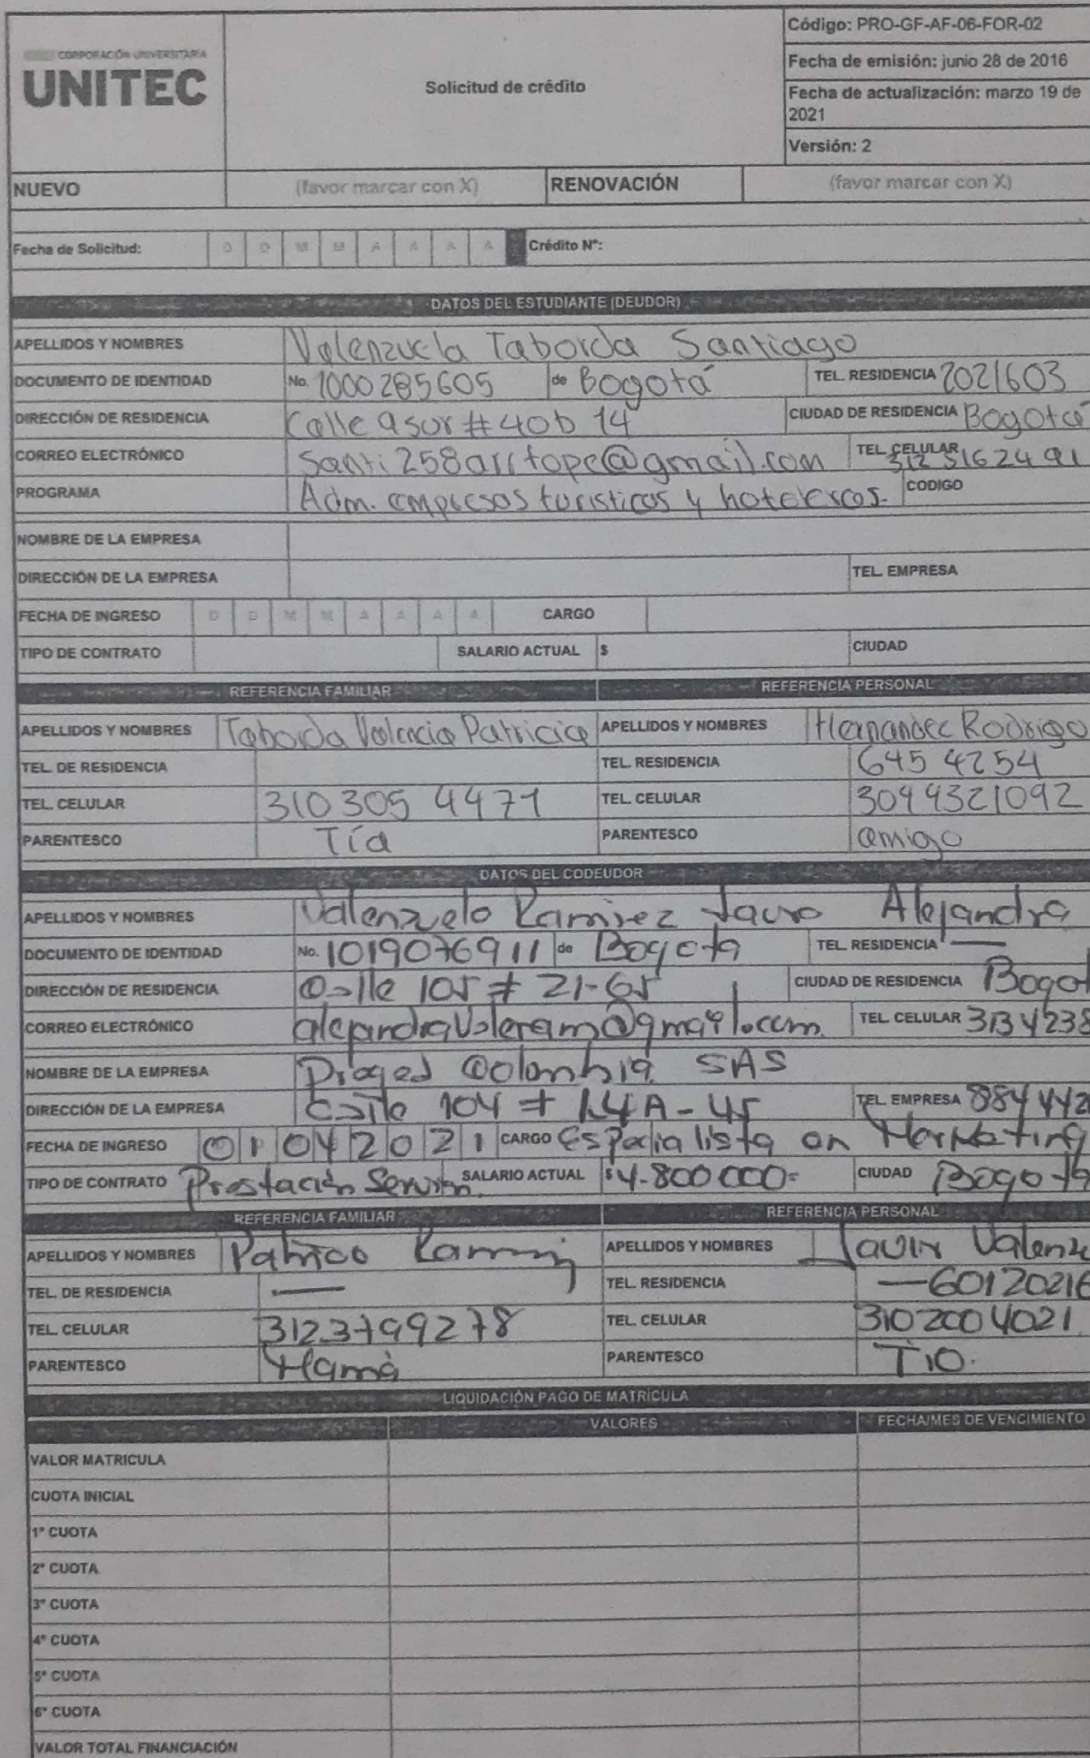 CORPORACIÓN UNIVERSITARIA
UNITEC
Solicitud de crédito
Código: PRO-GF-AF-06-FOR-02
Fecha de emisión: junio 28 de 2016
Fecha de actualización: marzo 19 de
2021
Versión: 2
NUEVO (favor marcar con X) RENOVACIÓN (favor marcar con X)
Fecha de Solicitud: D D M M A A A A Crédito N°:
DATOS DEL ESTUDIANTE (DEUDOR)
APELLIDOS Y NOMBRES Valenzuela Taborda Santiago
DOCUMENTO DE IDENTIDAD No. 1000285605 de Bogotá TEL. RESIDENCIA 2021603
DIRECCIÓN DE RESIDENCIA Calle 9sur #40b 14 CIUDAD DE RESIDENCIA Bogotá
CORREO ELECTRÓNICO TEL. CELULAR 312 5162491
PROGRAMA Adm. empresas turisticas y hoteleras. CODIGO
NOMBRE DE LA EMPRESA
DIRECCIÓN DE LA EMPRESA TEL. EMPRESA
FECHA DE INGRESO D D M M A A A A CARGO
TIPO DE CONTRATO SALARIO ACTUAL $ CIUDAD
REFERENCIA FAMILIAR REFERENCIA PERSONAL
APELLIDOS Y NOMBRES Taborda Valencia Patricia APELLIDOS Y NOMBRES Hernandez Rodrigo
TEL. DE RESIDENCIA TEL. RESIDENCIA 645 4254
TEL. CELULAR 310 305 4471 TEL. CELULAR 3044321092
PARENTESCO Tía PARENTESCO amigo
DATOS DEL CODEUDOR
APELLIDOS Y NOMBRES Valenzuela Ramirez Laura Alejandra
DOCUMENTO DE IDENTIDAD No. 1019076911 de Bogota TEL. RESIDENCIA —
DIRECCIÓN DE RESIDENCIA Calle # 21-65 CIUDAD DE RESIDENCIA Bogot
CORREO ELECTRÓNICO alejandravaleram@gmail.com. TEL. CELULAR 3134238
NOMBRE DE LA EMPRESA Colombia SAS
DIRECCIÓN DE LA EMPRESA Calle 104 # 14A-45 TEL. EMPRESA 884442
FECHA DE INGRESO 01042021 CARGO Especialista en Marketing
TIPO DE CONTRATO Prestación SALARIO ACTUAL $4.800000= CIUDAD Bogota
REFERENCIA FAMILIAR REFERENCIA PERSONAL
APELLIDOS Y NOMBRES APELLIDOS Y NOMBRES Valenzu
TEL. DE RESIDENCIA — TEL. RESIDENCIA —60120216
TEL. CELULAR 3123799278 TEL. CELULAR 3102004021
PARENTESCO Mamá PARENTESCO Tio.
LIQUIDACIÓN PAGO DE MATRÍCULA
VALORES FECHA/MES DE VENCIMIENTO
VALOR MATRICULA
CUOTA INICIAL
1° CUOTA
2° CUOTA
3° CUOTA
4° CUOTA
5° CUOTA
6° CUOTA
VALOR TOTAL FINANCIACIÓN